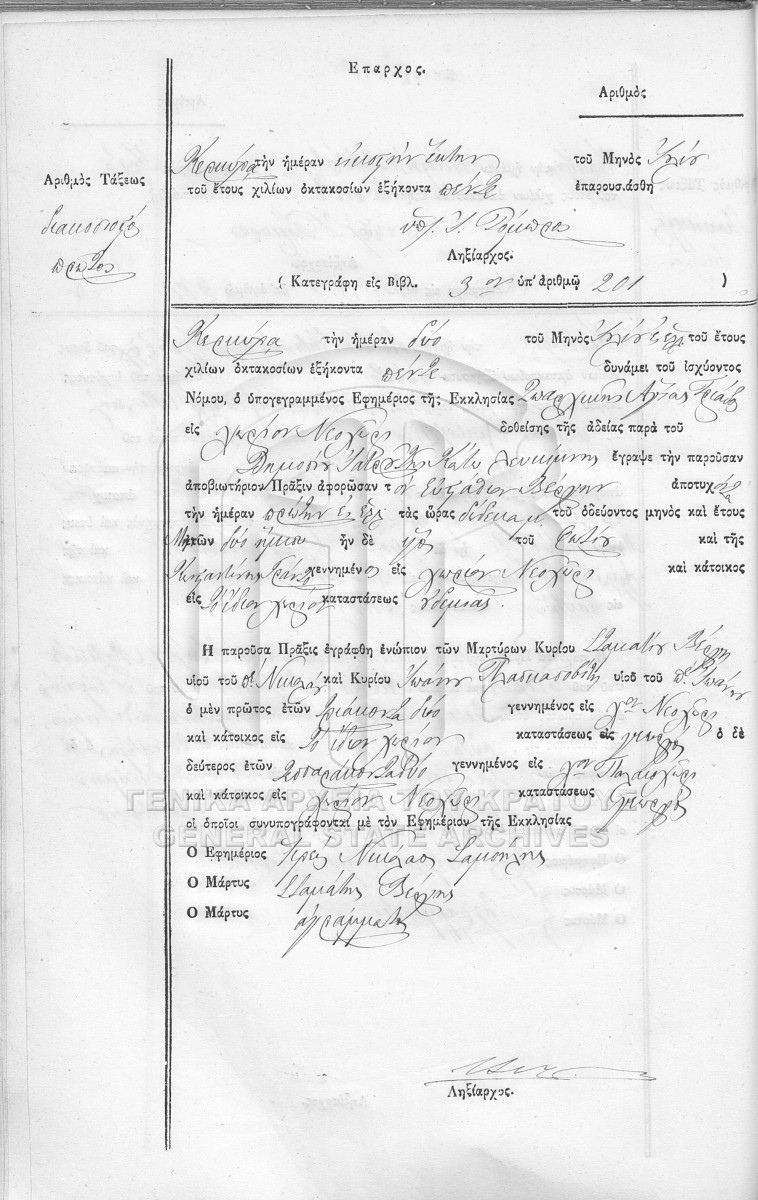 Ἔπαρχος.
Ἀριθμὸς
Ἀριθμὸς Τάξεως
διακοσιοστό
πρῶτος
Κερκύρα τὴν ἡμέραν εἰκοστὴν ἕκτην τοῦ Μηνὸς
τοῦ ἔτους χιλίων ὀκτακοσίων ἑξήκοντα πέντε ἐπαρουσιάσθη
ὑπ.
Ληξίαρχος.
( Κατεγράφη εἰς Βιβλ. 3 ον ὑπ' ἀριθμῷ 201 )
Κερκύρα τὴν ἡμέραν δύο τοῦ Μηνὸς τοῦ ἔτους
χιλίων ὀκτακοσίων ἑξήκοντα πέντε δυνάμει τοῦ ἰσχύοντος
Νόμου, ὁ ὑπογεγραμμένος Ἐφημέριος τῆς Ἐκκλησίας Ἁγίας Τριάδος
εἰς χωρίον Νεοχώρι δοθείσης τῆς ἀδείας παρὰ τοῦ
Δημοσίου Ἰατροῦ τῆς Κάτω Λευκίμμης ἔγραψε τὴν παροῦσαν
ἀποβιωτήριον Πρᾶξιν ἀφορῶσαν τ ὸν Εὐστάθιον Βέργην ἀποτυχ
τὴν ἡμέραν πρώτην τὰς ὥρας δώδεκα τοῦ ὁδεύοντος μηνὸς καὶ ἔτους
Μηνῶν δύο ἥμισυ ἦν δὲ υἱὸς τοῦ καὶ τῆς
Κωνσταντίνης γεννημένος εἰς χωρίον Νεοχώρι καὶ κάτοικος
εἰς τὸ ἴδιον χωρίον καταστάσεως οὐδεμιᾶς
Ἡ παροῦσα Πρᾶξις ἐγράφθη ἐνώπιον τῶν Μαρτύρων Κυρίου Σταματίου Βέργη
υἱοῦ τοῦ π. Νικολάου καὶ Κυρίου Ἰωάννου υἱοῦ τοῦ π. Ἰωάννου
ὁ μὲν πρῶτος ἐτῶν τριάκοντα δύο γεννημένος εἰς χον Νεοχώρι
καὶ κάτοικος εἰς τὸ ἴδιον χωρίον καταστάσεως εἰς γεωργός ὁ δὲ
δεύτερος ἐτῶν τεσσαράκοντα δύο γεννημένος εἰς χον Παλαιοχώρι
καὶ κάτοικος εἰς χωρίον Νεοχώρι καταστάσεως γεωργός
οἱ ὁποῖοι συνυπογράφονται μὲ τὸν Ἐφημέριον τῆς Ἐκκλησίας
Ὁ Ἐφημέριος Ἱερεὺς Νικόλαος
Ὁ Μάρτυς Σταμάτης Βέργης
Ὁ Μάρτυς ἀγράμματος
Ληξίαρχος.
ΓΕΝΙΚΑ ΑΡΧΕΙΑ ΤΟΥ ΚΡΑΤΟΥΣ
GENERAL STATE ARCHIVES